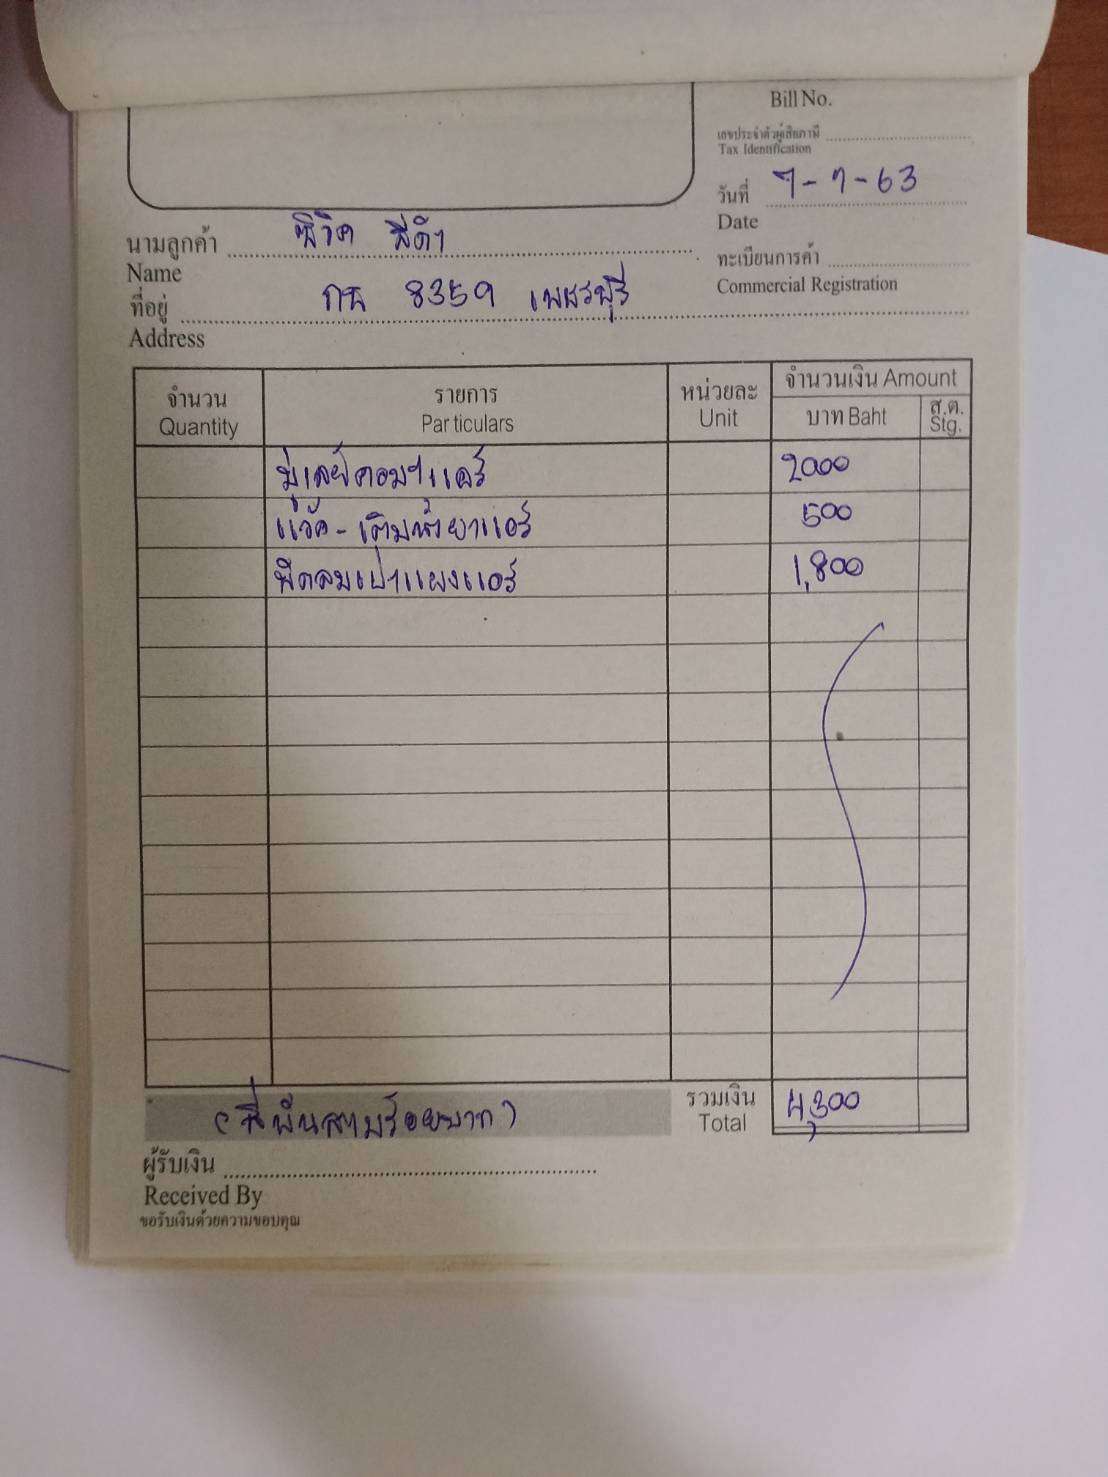 Bill No.
เลขประจำตัวผู้เสียภาษี
Tax Identification
วันที่ 7-7-63
Date
นามลูกค้า ซีวิค สีดำ
Name
ทะเบียนการค้า
Commercial Registration
ที่อยู่ กธ 8359 เพชรบุรี
Address
จำนวน รายการ หน่วยละ จำนวนเงิน Amount
Quantity Particulars Unit บาท Baht ส.ต. Stg.
มู่เลย์คอมฯแอร์ 2000
แว๊ค-เติมน้ำยาแอร์ 500
พัดลมเป่าแผงแอร์ 1,800
(สี่พันสามร้อยบาท) รวมเงิน 4,300
Total
ผู้รับเงิน
Received By
ขอรับเงินด้วยความขอบคุณ